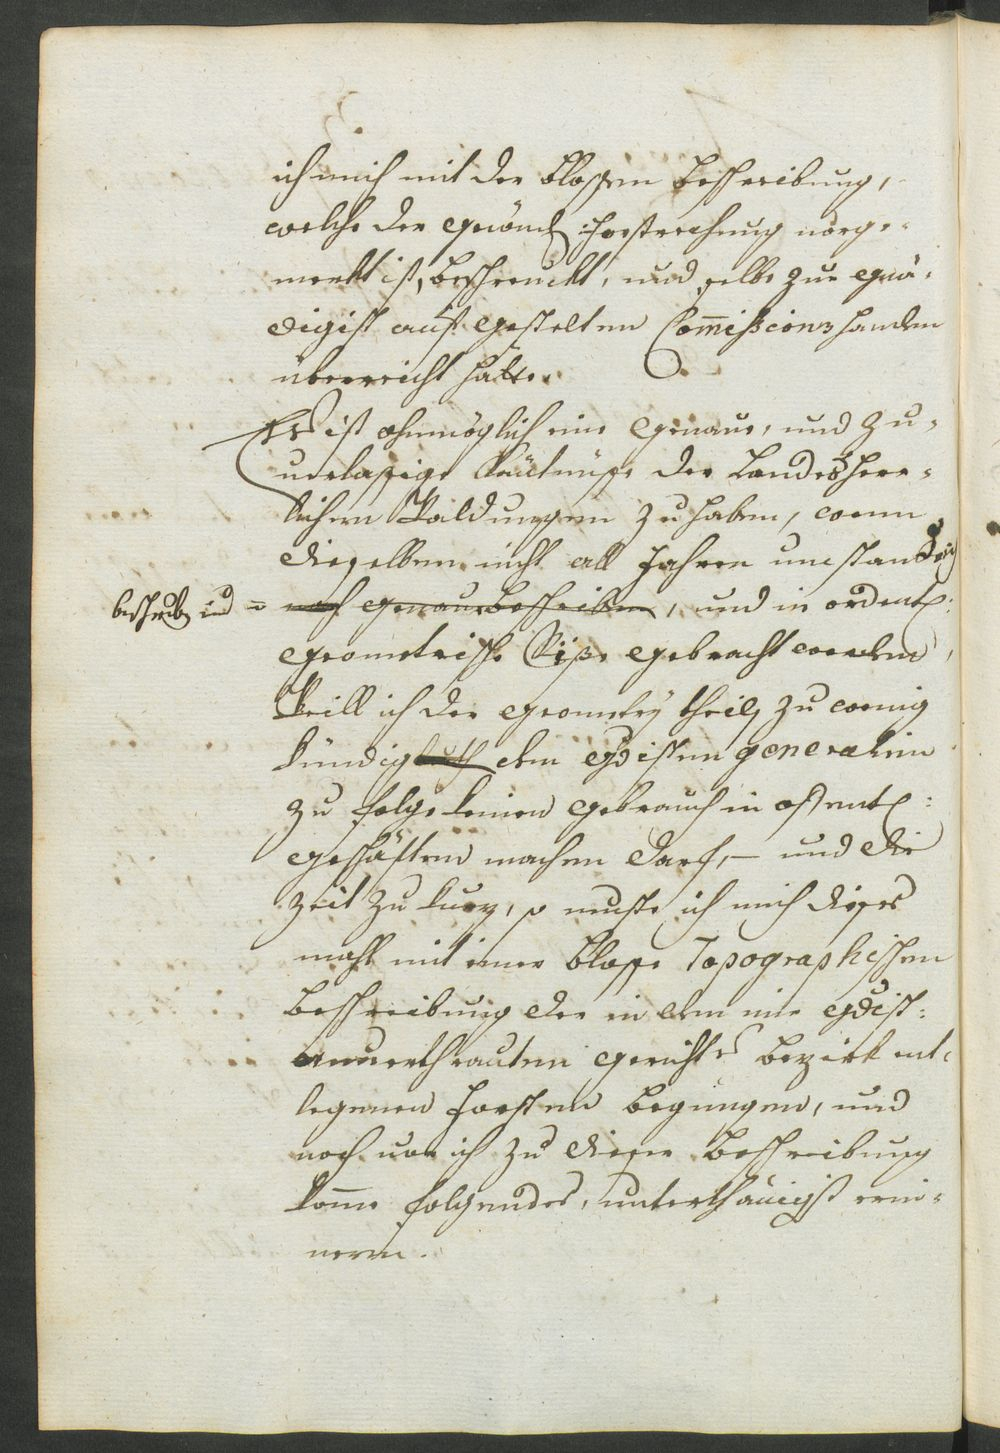 ich mich mit der blossen beschreibung,
welche der gewönl: forstrechnung vorge-
merkt ist, beschrenckt, und selbe zur gnä-
digist aufgestelten Commißions handen
überreicht hätte.
Es ist ohnmöglich eine genaue, und zu-
verlässige käntnüsse der Landesherr-
lichen Waldungen zu haben, wenn
dieselben nicht all Jahren umständlich
beschriben und = nach genau beschreiben, und in ordentl:
geometrische Risse gebracht werden,
Weill ich der geometry theils zu wenig
kündig auch dem gdisten generalien
zu folge keinen gebrauch in offentl:
geschäften machen darf, – und die
zeit zu kurz, so muste ich mich dieses
mahl mit einer blosse Topographischen
beschreibung der in dem mir gdist:
anverthrauten gerichts bezirk ent-
legenen forsten begnügen, und
noch vor ich zu dieser beschreibung
komme folgendes, unterthänigst erin-
nern.